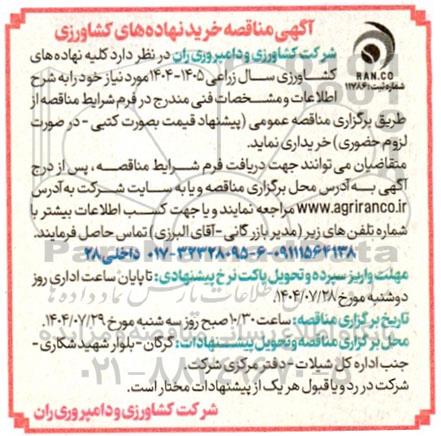 آگهی مناقصه خرید نهاده های کشاورزی
RAN.CO
شماره ثبت: ۱۱۷۸۶
شرکت کشاورزی و دامپروری ران در نظر دارد کلیه نهاده های
کشاورزی سال زراعی ۱۴۰۵-۱۴۰۴ مورد نیاز خود را به شرح
اطلاعات و مشخصات فنی مندرج در فرم شرایط مناقصه از
طریق برگزاری مناقصه عمومی (پیشنهاد قیمت بصورت کتبی - در صورت
لزوم حضوری) خریداری نماید.
متقاضیان می توانند جهت دریافت فرم شرایط مناقصه، پس از درج
آگهی به آدرس محل برگزاری مناقصه و یا به سایت شرکت به آدرس
www.agriranco.ir مراجعه نمایند و یا جهت کسب اطلاعات بیشتر با
شماره تلفن های زیر (مدیر بازرگانی - آقای البرزی) تماس حاصل فرمایند.
۰۹۱۱۱۵۶۴۱۳۸-۰۱۷-۳۲۳۲۸۰۹۵-۶ داخلی ۲۸
مهلت واریز سپرده و تحویل پاکت نرخ پیشنهادی: تا پایان ساعت اداری روز
دوشنبه مورخ ۱۴۰۴/۰۷/۲۸.
تاریخ برگزاری مناقصه: ساعت ۱۰/۳۰ صبح روز سه شنبه مورخ ۱۴۰۴/۰۷/۲۹.
محل برگزاری مناقصه و تحویل پیشنهادات: گرگان - بلوار شهید شکاری -
جنب اداره کل شیلات - دفتر مرکزی شرکت.
شرکت در رد و یا قبول هر یک از پیشنهادات مختار است.
شرکت کشاورزی و دامپروری ران